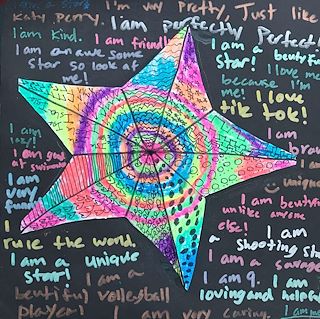 I'm very Pretty, Just like
Katy Perry. I am perfectly Perfect!
I am Kind. I am friendly
I am a beutyful
I am an awe some
star so look at
me!
star!
I love me
because I'm
me! I love
tik tok!
I am
lazy!
I am
brave
I am good
at swimming
I am
very
funny
unique
I am beutiful
unlike anyone
else! I am
a shooting star
I
rule the world.
I am a unique
star!
I am a savage
I am 9. I am
loving and helpful
I am a
beutiful volleyball
player!
I am very caring. I am me